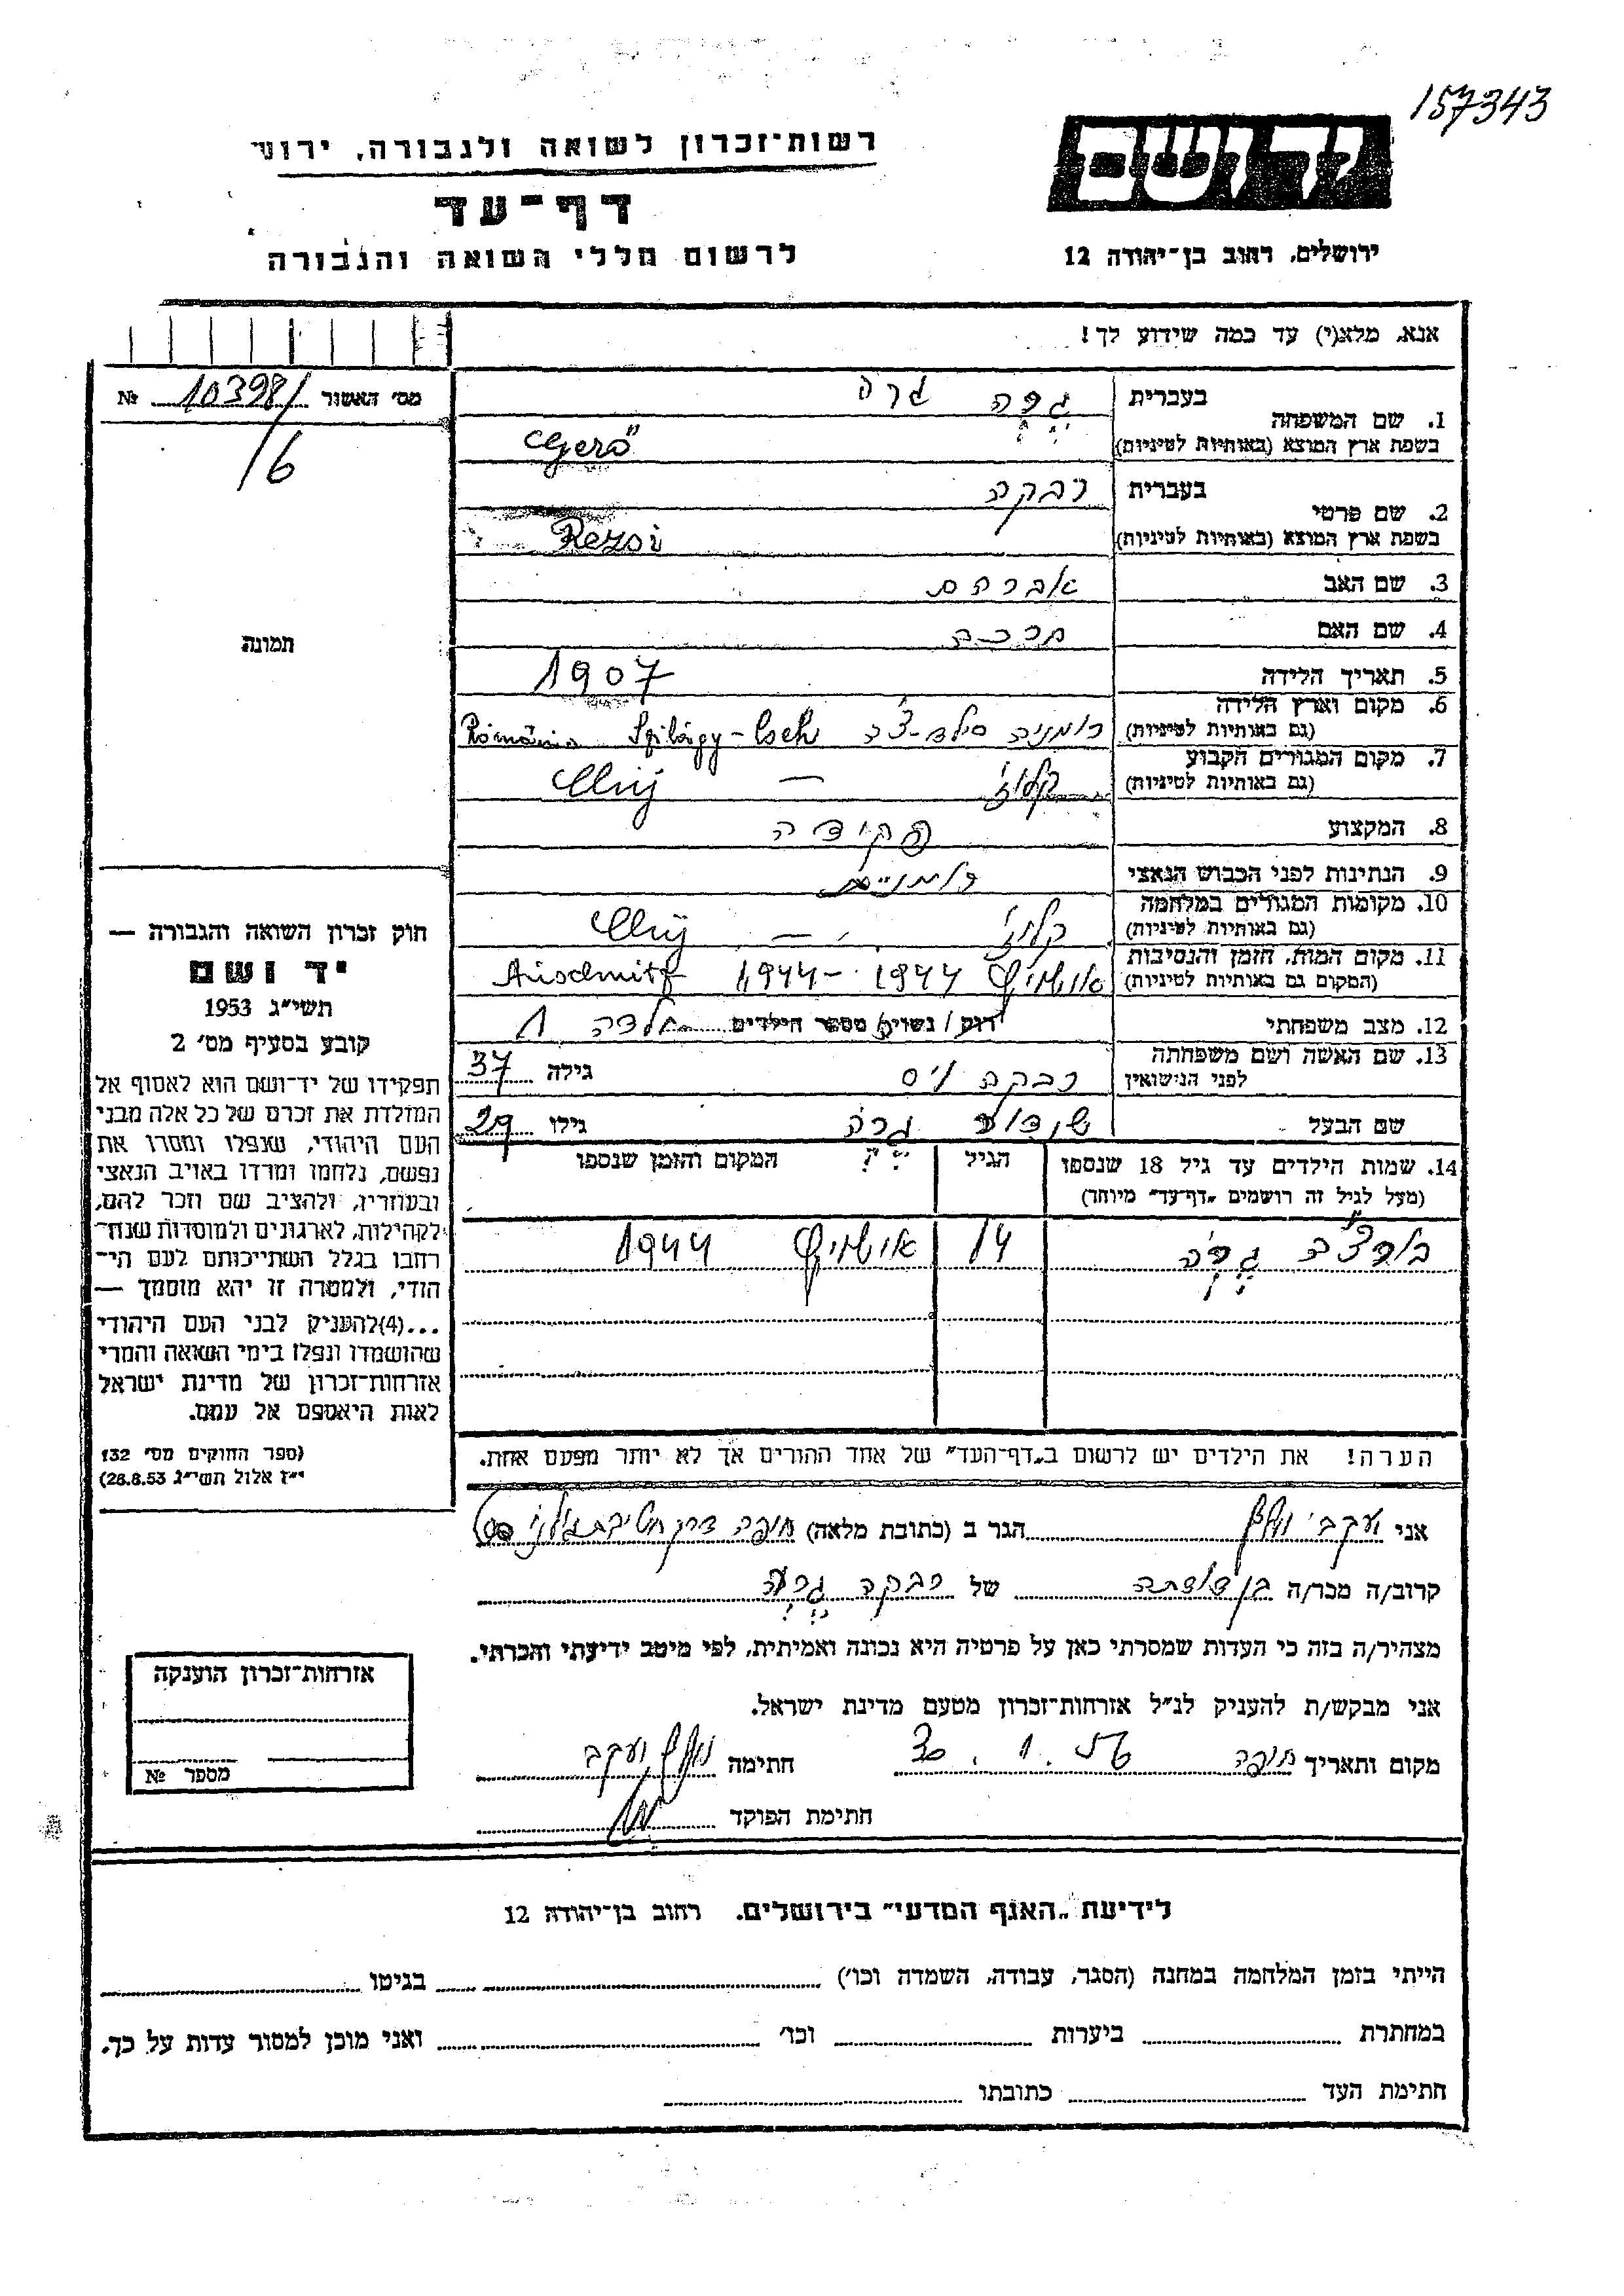 157343
יד ושם
ירושלים, רחוב בן־יהודה 12
רשות־זכרון לשואה ולגבורה, ירוש
דף־עד
לרשום חללי השואה והגבורה
אנא, מלא(י) עד כמה שידוע לך!
מס׳ האשור № 103981
/6
תמונה
1. שם המשפחה
בעברית גרה גרה
בשפת ארץ המוצא (באותיות לטיניות) Gerő
2. שם פרטי
בעברית רבקה
בשפת ארץ המוצא (באותיות לטיניות) Rezsi
3. שם האב אברהם
4. שם האם
5. תאריך הלידה 1907
6. מקום וארץ הלידה
(גם באותיות לטיניות) רומניה Szilágy-Cseh România
7. מקום המגורים הקבוע
(גם באותיות לטיניות) קלוז׳ — Cluj
8. המקצוע פקידה
9. הנתינות לפני הכבוש הנאצי
10. מקומות המגורים במלחמה
(גם באותיות לטיניות) קלוז׳ — Cluj
11. מקום המות, הזמן והנסיבות
(המקום גם באותיות לטיניות) אושויץ 1944 — 1944 Auschwitz
12. מצב משפחתי רווק / נשוי / מספר הילדים ילדה 1
13. שם האשה ושם משפחתה
לפני הנישואין רבקה גילה 37
שם הבעל גרה גילו 29
14. שמות הילדים עד גיל 18 שנספו
(מעל לגיל זה רושמים „דף־עד״ מיוחד)
הגיל
המקום והזמן שנספו
גרה 14 אושויץ 1944
הערה! את הילדים יש לרשום ב„דף־העד״ של אחד ההורים אך לא יותר מפעם אחת.
חוק זכרון השואה והגבורה —
יד ושם
תשי״ג 1953
קובע בסעיף מס׳ 2
תפקידו של יד־ושם הוא לאסוף אל
המולדת את זכרם של כל אלה מבני
העם היהודי, שנפלו ומסרו את
נפשם, נלחמו ומרדו באויב הנאצי
ובעוזריו, ולהציב שם וזכר להם,
לקהילות, לארגונים ולמוסדות שנח־
רחבו בגלל השתייכותם לעם הי־
הודי, ולמטרה זו יהא מוסמך —
...(4)להעניק לבני העם היהודי
שהושמדו ונפלו בימי השואה והמרי
אזרחות־זכרון של מדינת ישראל
לאות היאספם אל עמם.
(ספר החוקים מס׳ 132
י״ז אלול תשי״ג 28.8.53)
אני הגר ב (כתובת מלאה) חיפה דרך
קרוב/ה מכר/ה בן דודתה של רבקה
מצהיר/ה בזה כי העדות שמסרתי כאן על פרטיה היא נכונה ואמיתית, לפי מיטב ידיעתי והכרתי.
אני מבקש/ת להעניק לנ״ל אזרחות־זכרון מטעם מדינת ישראל.
מקום ותאריך חיפה 30.1.56 חתימה
חתימת הפוקד
אזרחות־זכרון הוענקה
מספר №
לידיעת „האגף המדעי״ בירושלים, רחוב בן־יהודה 12
הייתי בזמן המלחמה במחנה (הסגר, עבודה, השמדה וכו׳) בגיטו
במחתרת ביערות וכו׳ ואני מוכן למסור עדות על כך.
חתימת העד כתובתו